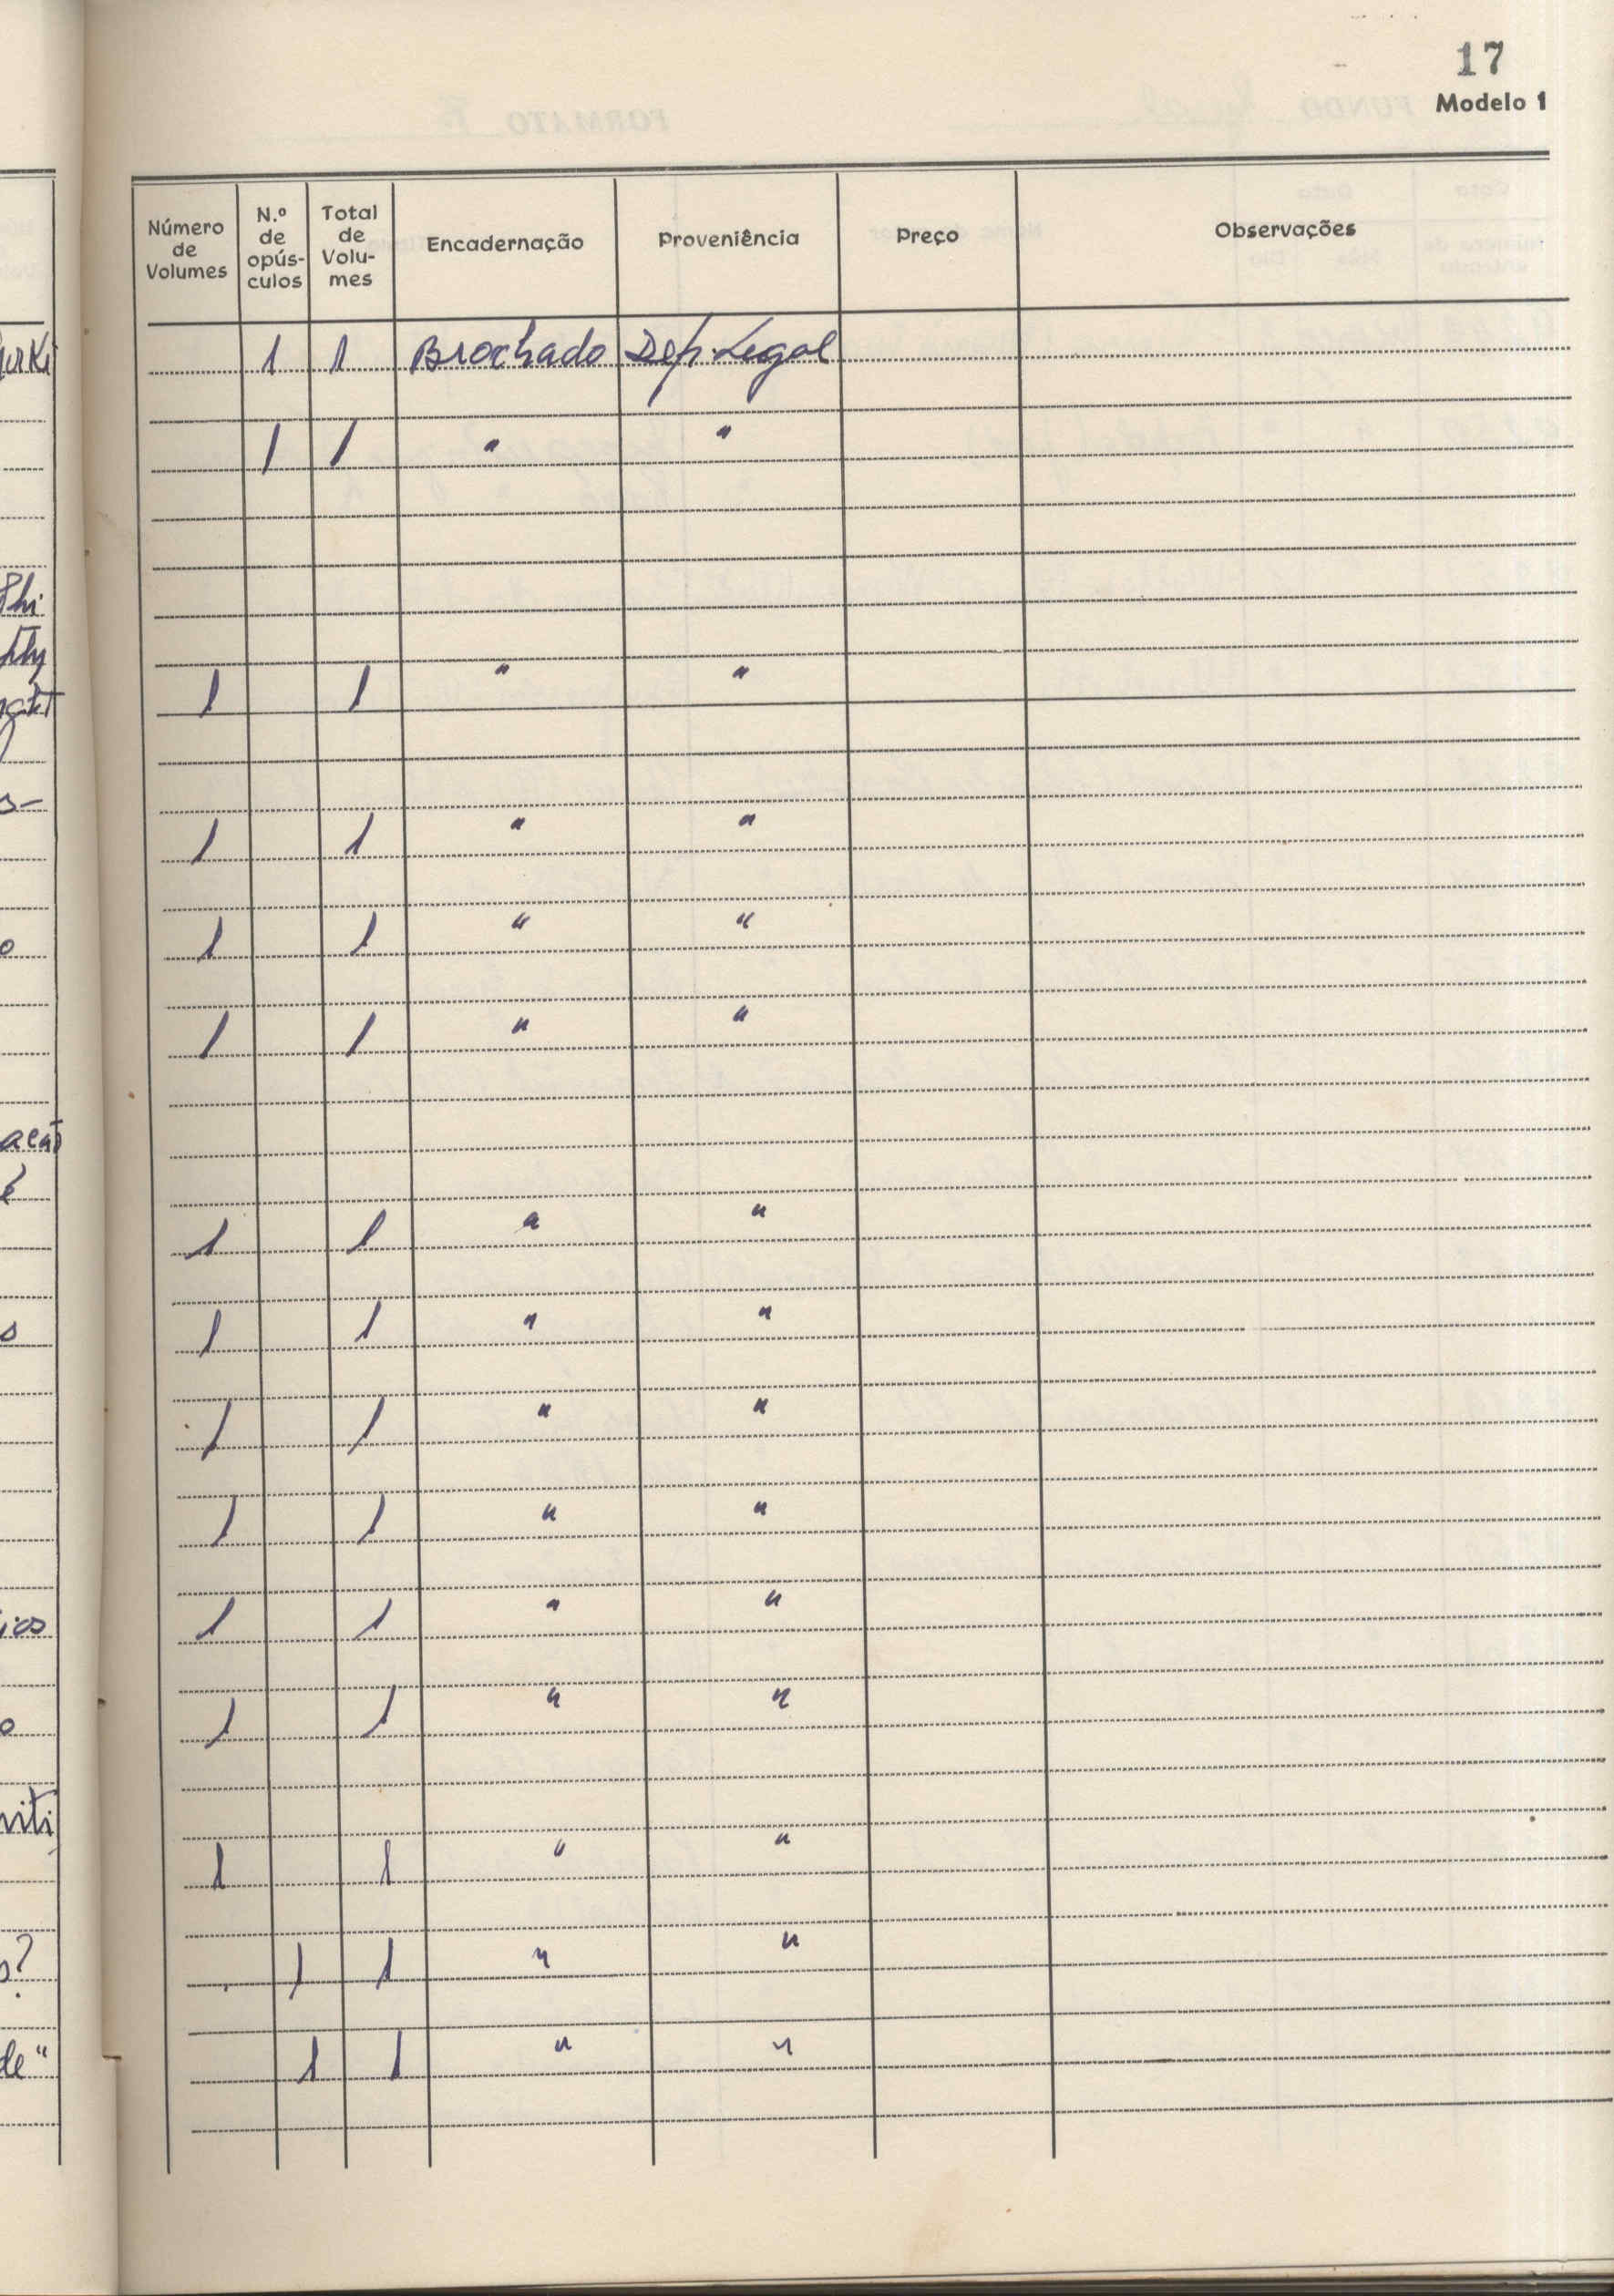 17
Modelo 1
Número de Volumes | N.º de opús-culos | Total de Volu-mes | Encadernação | Proveniência | Preço | Observações
urki
1 1 Brochado Dep. Legal
1 1 " "
Phi
1 1 " "
s-
1 1 " "
o
1 1 " "
1 1 " "
1 1 " "
s
1 1 " "
1 1 " "
1 1 " "
ios
1 1 " "
o
1 1 " "
viti
1 1 " "
s?
1 1 " "
de"
1 1 " "